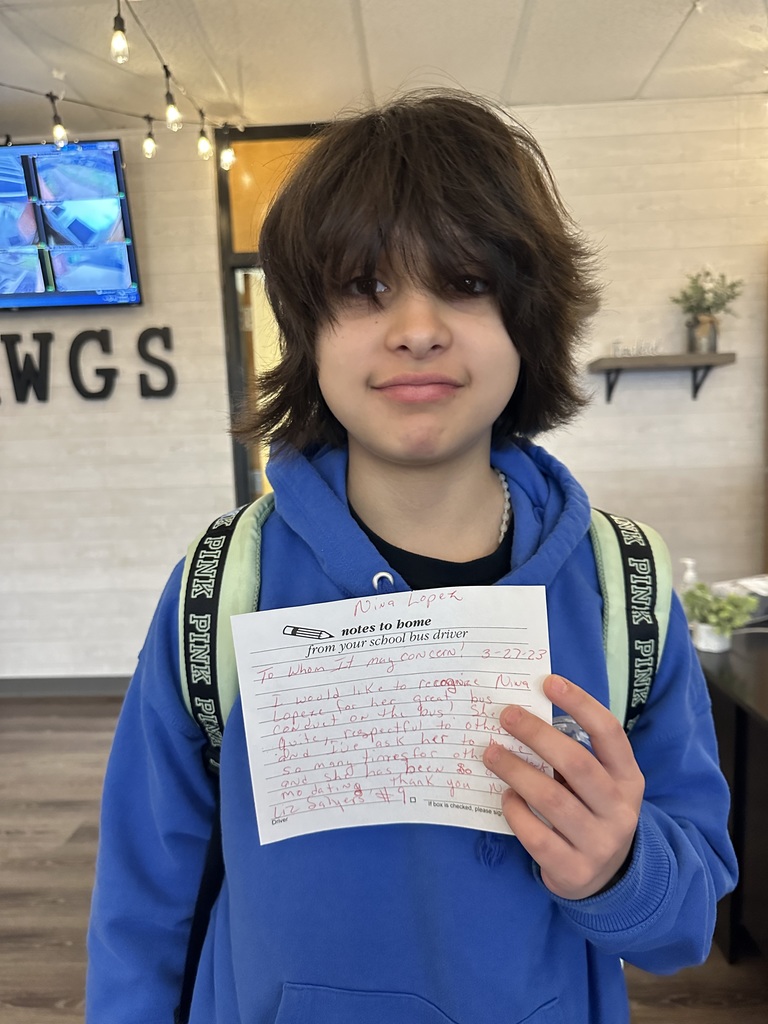 WGS
PINK PINK PINK PINK
PINK PINK PINK
Nina Lopez
notes to home
from your school bus driver
To Whom It may concern! 3-27-23
I would like to recognize Nina
Lopez for her great bus
conduct on the bus! She
quite, respectful to othe
and I've ask her to
so many times for othe
and she has been so
modating, thank you N
Liz Salyers #9
Driver
If box is checked, please sig